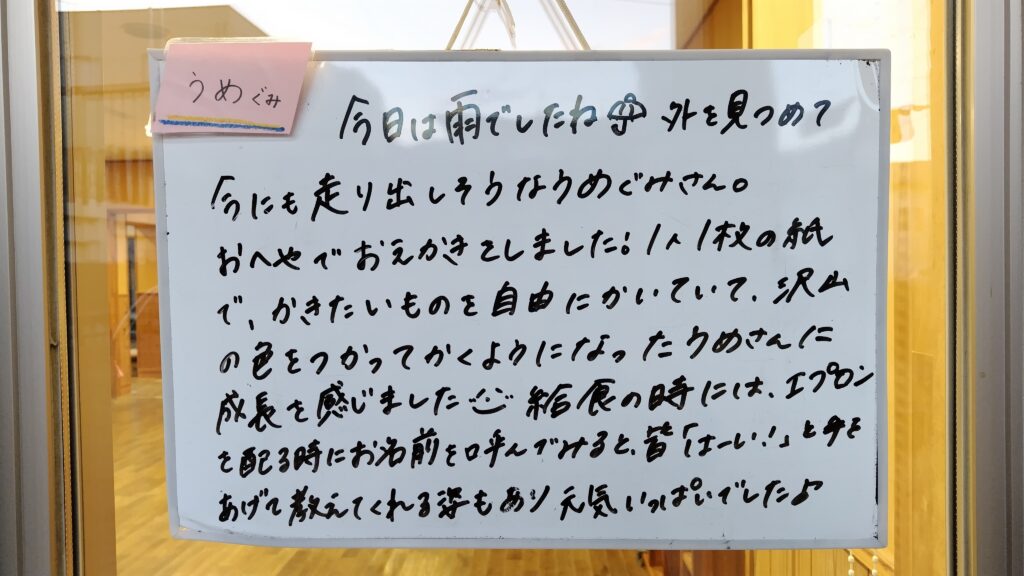 うめぐみ
今日は雨でしたね☂ 外を見つめて
今にも走り出しそうなうめぐみさん。
おへやでおえかきをしました!1人1枚の紙
で、かきたいものを自由にかいていて、沢山
の色をつかってかくようになったうめさんに
成長を感じました 給食の時には、エプロン
を配る時にお名前を呼んでみると、皆「はーい!」と手を
あげて教えてくれる姿もあり元気いっぱいでした♪